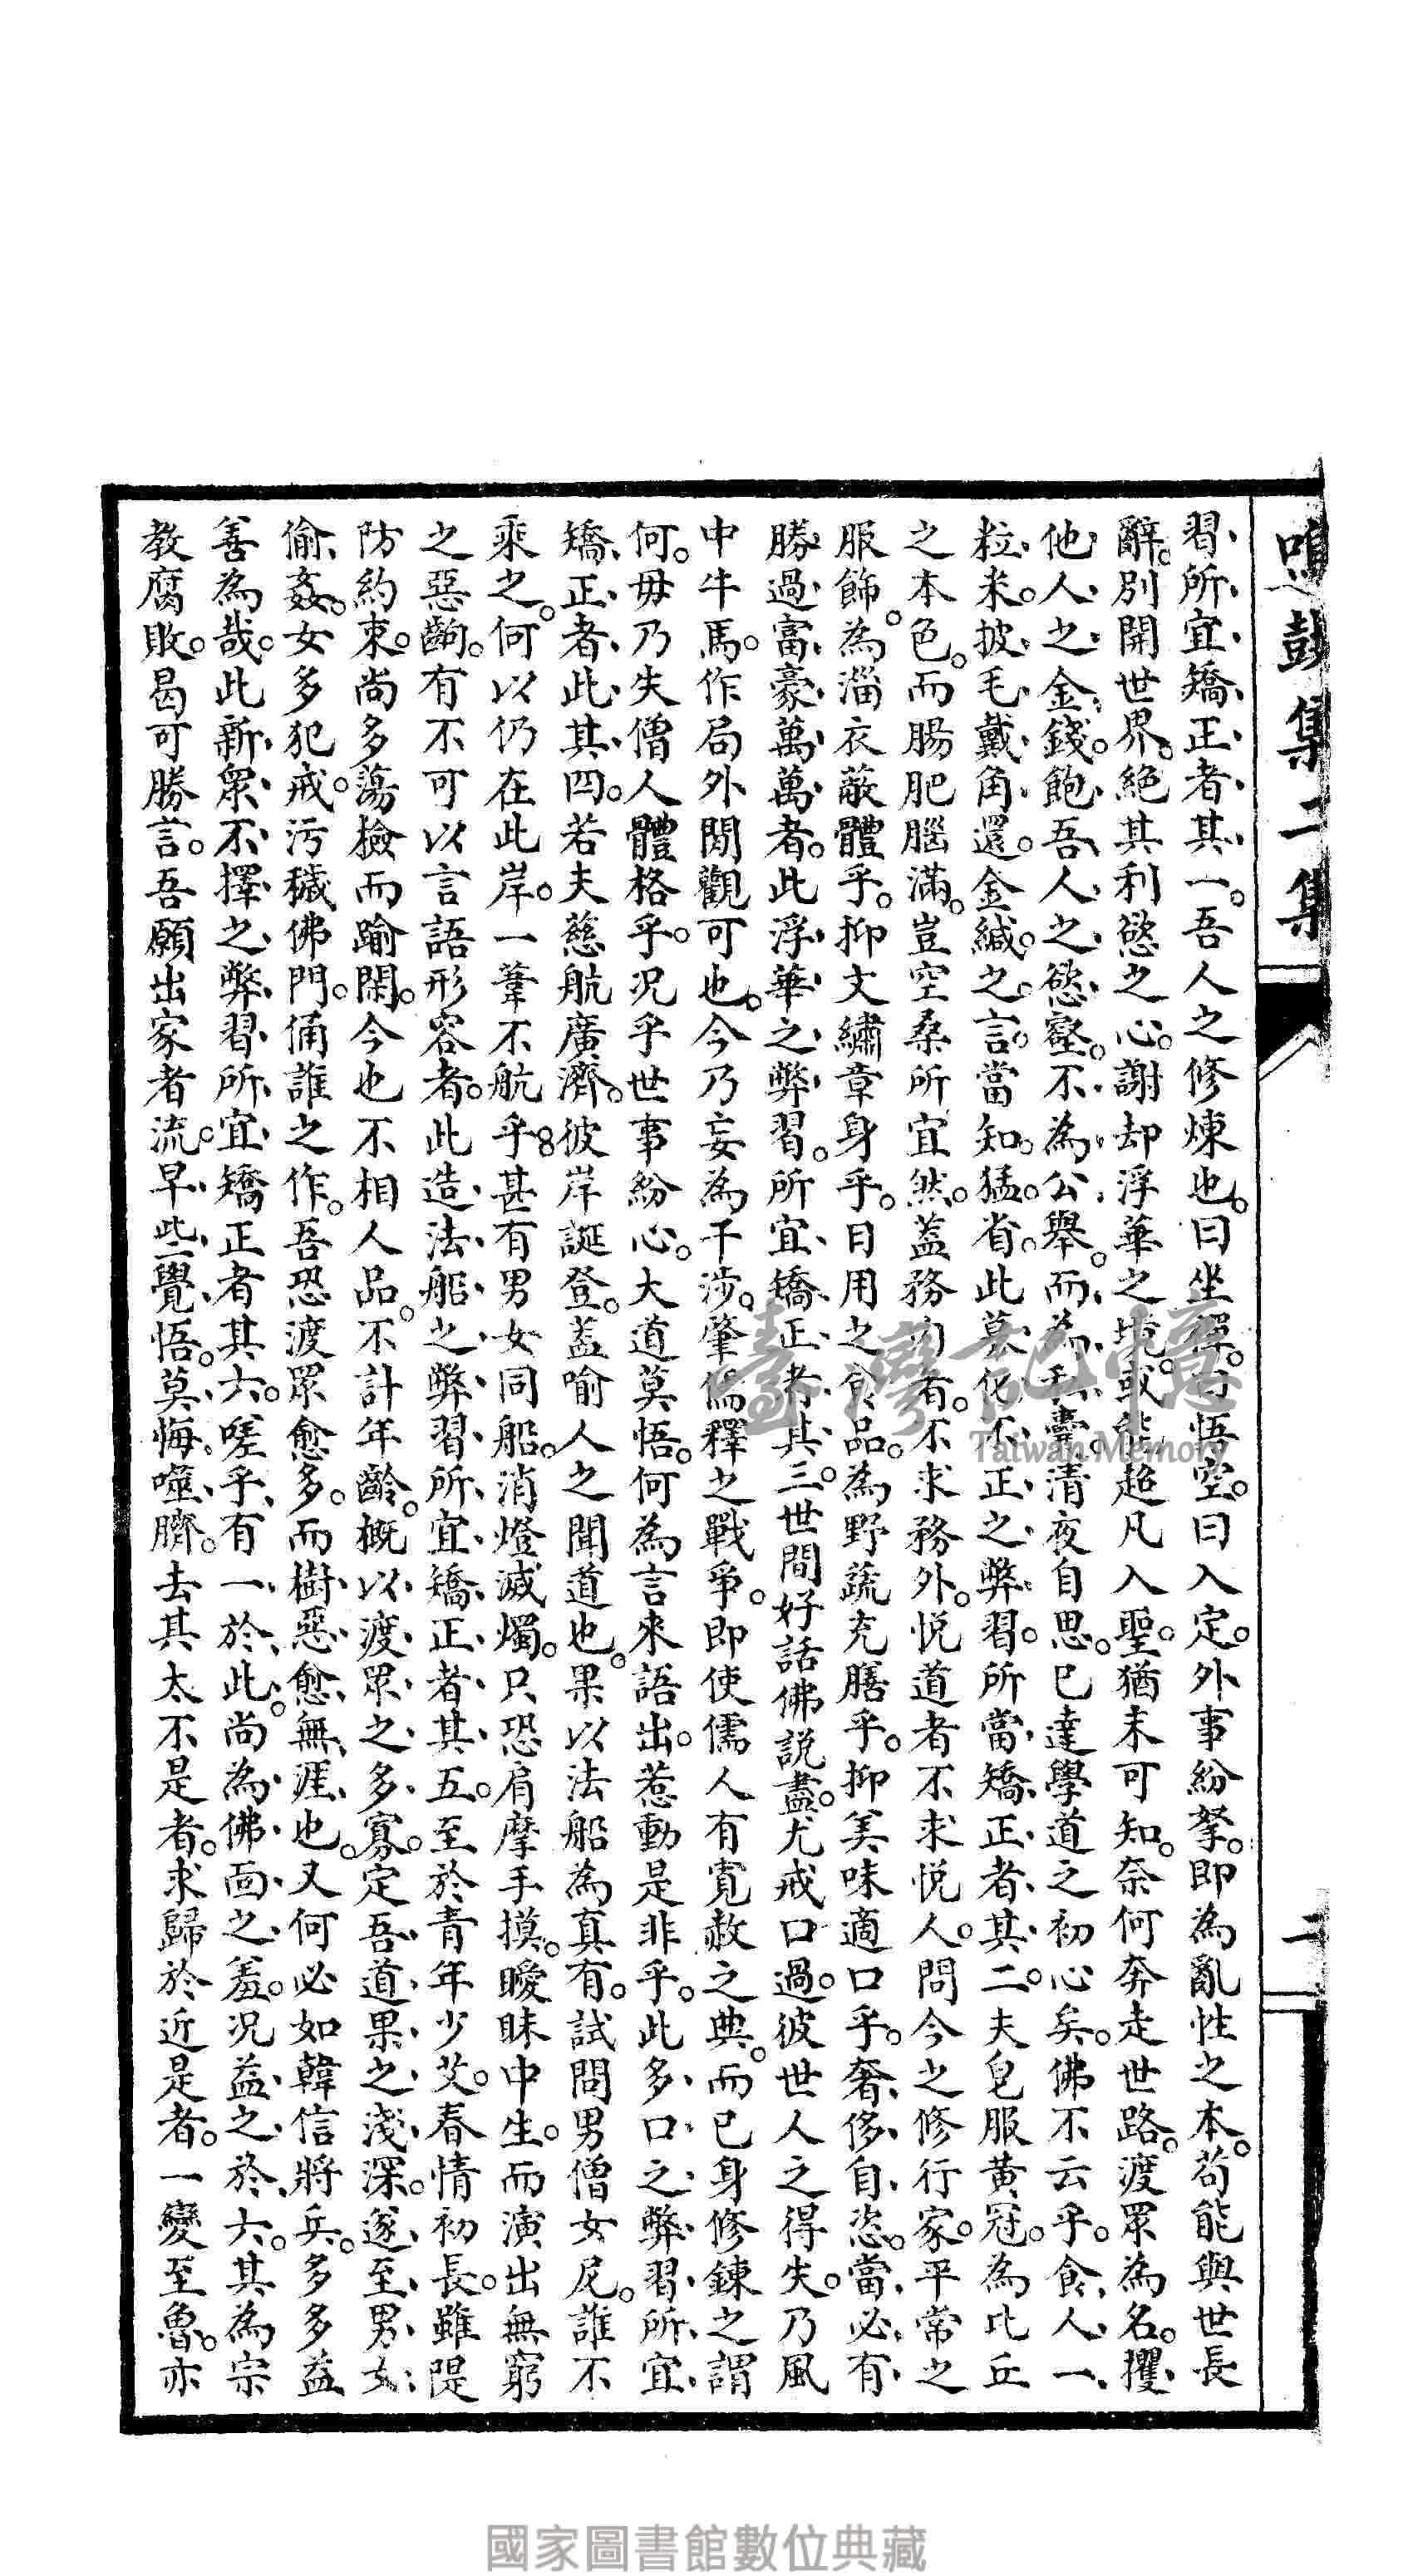 鳴鼓集二集
二
習、所、宜、矯、正、者、其、一。吾人之修煉也。曰坐禪。曰悟空。曰入定。外事紛拏。即為亂性之本。苟能與世長
辭。別開世界。絕其利慾之心。謝却浮華之境。或能超凡入聖。猶未可知。奈何奔走世路。渡眾為名。攫、
他、人、之、金、錢。飽、吾、人、之、慾、壑。不、為、公、舉。而、為、私、囊。清夜自思。已違學道之初心矣。佛不云乎。食、人、一、
粒、米。披、毛、戴、角、還。金緘之言。當知猛省。此、募、化、不、正、之、弊、習。所、當、矯、正、者、其、二。夫皂服黃冠。為比丘
之本色。而腸肥腦滿。豈空桑所宜然。蓋務內者。不求務外。悅道者不求悅人。問今之修行家。平常之
服飾。為淄衣蔽體乎。抑文繡章身乎。日用之食品。為野蔬充膳乎。抑美味適口乎。奢、侈、自、恣。當、必、有、
勝、過、富、豪、萬、萬、者。此、浮、華、之、弊、習。所、宜、矯、正、者、其、三。世間好話佛說盡。尤戒口過。彼世人之得失。乃風
中牛馬。作局外閒觀可也。今乃妄為干涉。肇儒釋之戰爭。即使儒人有寬赦之典。而已身修鍊之謂
何。毋乃失僧人體格乎。况乎世事紛心。大道莫悟。何為言來語出。惹動是非乎。此、多、口、之、弊、習、所、宜、
矯、正、者、此、其、四。若夫慈航廣濟。彼岸誕登。蓋喻人之聞道也。果以法船為真有。試問男僧女尼。誰不
乘之。何以仍在此岸。一葦不航乎。甚有男女同船。消燈滅燭。只恐肩摩手摸。曖昧中生。而演出無窮
之惡齣。有不可以言語形容者。此、造、法、船、之、弊、習、所、宜、矯、正、者、其、五。至於青年少艾。春情初長。雖隄
防約束。尚多蕩檢而踰閑。今也不相人品。不計年齡。概、以、渡、眾、之、多、寡。定、吾、道、果、之、淺、深。遂、至、男、女、
偷、姦。女多犯戒。污穢佛門。俑誰之作。吾恐渡眾愈多。而樹、惡、愈、無、涯、也。又何必如韓信將兵。多多益
善為哉。此、新、眾、不、擇、之、弊、習、所、宜、矯正者其六。嗟、乎、有、一、於、此。尚、為、佛、面、之、羞。况、益、之、於、六。其為宗
教腐敗。曷可勝言。吾願出家者流。早、些、覺、悟。莫、悔、噬、臍。去其太不是者。求歸於近是者。一變至魯。亦
臺灣記憶
Taiwan Memory
國家圖書館數位典藏